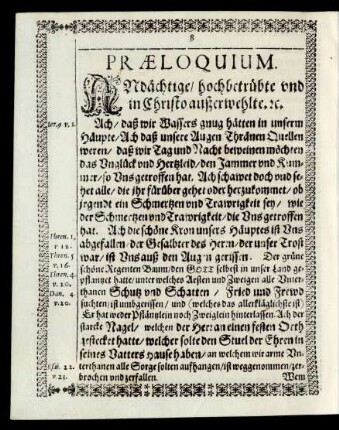 8
PRÆLOQUIUM.
ANdächtige/ hochbetrübte vnd
in Christo außerwehlte. ꝛc.
Ach/ daß wir Wassers gnug hätten in unserm
Häupte/ Ach daß unsere Augen Thränen Quellen
weren/ daß wir Tag und Nacht beweinen möchten
das Unglück und Hertzleid/ den Jammer und Kum-
mer/ so Uns getroffen hat. Ach schawet doch und se-
het alle/ die ihr fürüber gehet oder herzukommet/ ob
irgend ein Schmertzen und Trawrigkeit sey/ wie
der Schmertzen und Trawrigkeit/ die Uns getroffen
hat. Ach die schöne Kron unsers Häuptes ist Uns
abgefallen/ der Gesalbter des Herrn/ der unser Trost
war/ ist Uns auß den Augen gerissen. Der grüne
schöne Regenten Baum/ den GOTT selbest in unser Land ge-
pflanzet hatte/ unter welches Aesten und Zweigen alle Unter-
thanen Schutz und Schatten/ Fried und Frewd
suchten/ ist umbgerissen/ und (welches das aller kläglichste ist)
Er hat weder Pflänzlein noch Zweiglein hinterlassen. Ach der
starcke Nagel/ welchen der Herr an einen festen Orth
gestecket hatte/ welcher solte den Stuel der Ehren in
seines Vatters Hause haben/ an welchem wir arme Un-
terthanen alle Sorge solten auffhangen/ ist weggenommen/ zer-
brochen und zerfallen. Wem
Jer. 9. v. 1.
Thren. 1.
v. 12.
Thren. 5
v. 16.
Thren. 4.
v. 20.
Dan. 4.
v. 20.
Esa. 22.
v. 23.